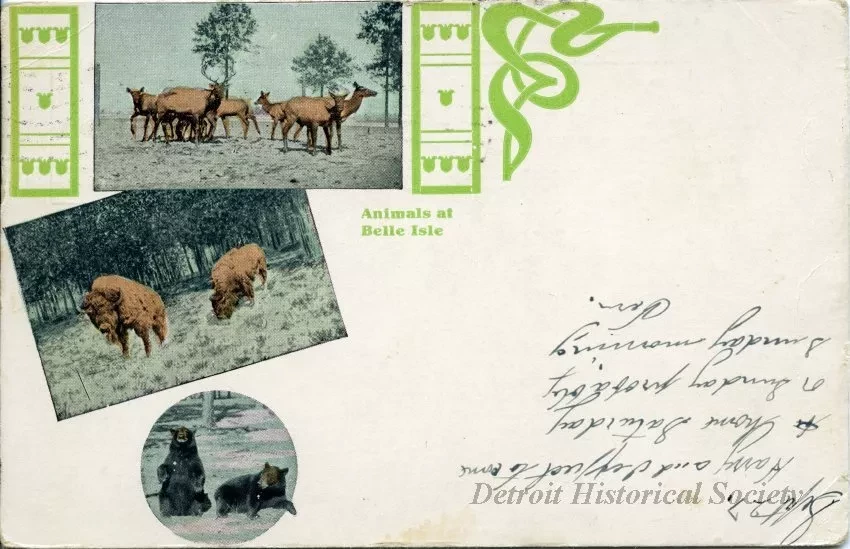 Animals at
Belle Isle
Sept 22
Harry and I expect to come
home Saturday
or Sunday probably
Sunday morning
Detroit Historical Society